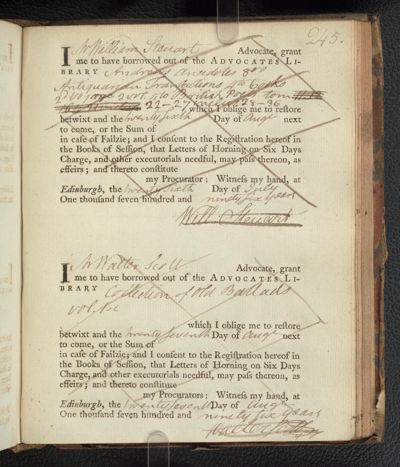 245.
I Mr William Steuart Advocate, grant
me to have borrowed out of the ADVOCATES LI-
BRARY Andrews Anecdotes 8vo
Antiquarian Transactions
22-27 28-36 which I oblige me to restore
betwixt and the twenty sixth Day of Augt next
to come, or the Sum of
in case of Failzie; and I consent to the Registration hereof in
the Books of Session, that Letters of Horning on Six Days
Charge, and other executorials needful, may pass thereon, as
effeirs; and thereto constitute
my Procurator: Witness my hand, at
Edinburgh, the twenty sixth Day of July
One thousand seven hundred and ninety six years
Will Steuart
I Mr Walter Scott Advocate, grant
me to have borrowed out of the ADVOCATES LI-
BRARY Collection of Old Ballads
vol.
which I oblige me to restore
betwixt and the twenty seventh Day of Augt next
to come, or the Sum of
in case of Failzie; and I consent to the Registration hereof in
the Books of Session, that Letters of Horning on Six Days
Charge, and other executorials needful, may pass thereon, as
effeirs; and thereto constitute
my Procurator: Witness my hand, at
Edinburgh, the twenty seventh Day of Augt
One thousand seven hundred and ninety six years
Walter Scott